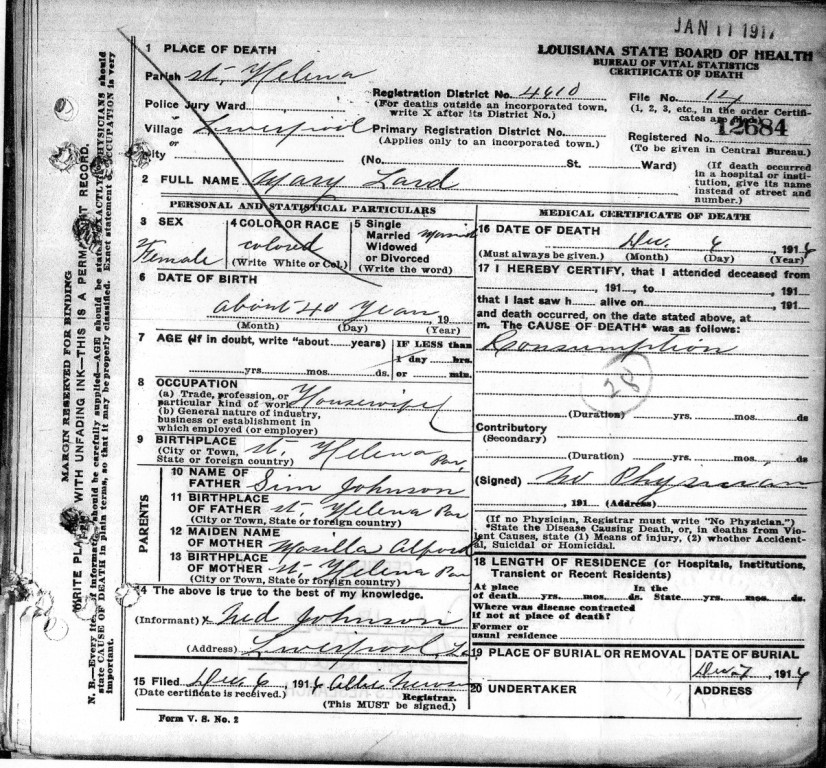 JAN 11 1917
LOUISIANA STATE BOARD OF HEALTH
BUREAU OF VITAL STATISTICS
CERTIFICATE OF DEATH
1 PLACE OF DEATH
Parish St. Helena
Police Jury Ward
Village Liverpool
or
City
Registration District No. 4610
(For deaths outside an incorporated town,
write X after its District No.)
Primary Registration District No.
(Applies only to an incorporated town.)
(No. St. Ward)
File No. 124
(1, 2, 3, etc., in the order Certifi-
cates are filed)
Registered No. 12684
(To be given in Central Bureau.)
(If death occurred
in a hospital or insti-
tution, give its name
instead of street and
number.)
2 FULL NAME Mary Lard
PERSONAL AND STATISTICAL PARTICULARS
3 SEX
Female
4 COLOR OR RACE
colored
(Write White or Col.)
5 Single
Married
Widowed
or Divorced
(Write the word)
Married
6 DATE OF BIRTH
about 40 years, 19
(Month) (Day) (Year)
7 AGE (If in doubt, write "about years)
yrs. mos. ds.
IF LESS than
1 day hrs.
or min.
8 OCCUPATION
(a) Trade, profession, or
particular kind of work Housewife
(b) General nature of industry,
business or establishment in
which employed (or employer)
9 BIRTHPLACE
(City or Town,
State or foreign country) St. Helena Par,
PARENTS
10 NAME OF
FATHER Sim Johnson
11 BIRTHPLACE
OF FATHER St. Helena Par
(City or Town, State or foreign country)
12 MAIDEN NAME
OF MOTHER Morilla Alford
13 BIRTHPLACE
OF MOTHER St. Helena Par
(City or Town, State or foreign country)
14 The above is true to the best of my knowledge.
(Informant) x Ned Johnson
(Address) Liverpool, La
15 Filed Dec. 6, 1916 Allie
(Date certificate is received.) Registrar.
(This MUST be signed.)
Form V. S. No. 2
MEDICAL CERTIFICATE OF DEATH
16 DATE OF DEATH
Dec. 6 1916
(Must always be given.) (Month) (Day) (Year)
17 I HEREBY CERTIFY, that I attended deceased from
, 191 , to , 191
that I last saw h alive on , 191
and death occurred, on the date stated above, at
m. The CAUSE OF DEATH* was as follows:
Consumption
28
(Duration) yrs. mos. ds
Contributory
(Secondary)
(Duration) yrs. mos. ds.
(Signed) No Physician
, 191 (Address)
(If no Physician, Registrar must write "No Physician.")
*State the Disease Causing Death, or, in deaths from Vio-
lent Causes, state (1) Means of injury, (2) whether Accident-
al, Suicidal or Homicidal.
18 LENGTH OF RESIDENCE (or Hospitals, Institutions,
Transient or Recent Residents)
At place In the
of death yrs. mos. ds. State yrs. mos. ds.
Where was disease contracted
if not at place of death?
Former or
usual residence
19 PLACE OF BURIAL OR REMOVAL
DATE OF BURIAL
Dec. 7, 1916
20 UNDERTAKER
ADDRESS
MARGIN RESERVED FOR BINDING
WRITE PLAINLY WITH UNFADING INK—THIS IS A PERMANENT RECORD.
N. B.—Every item of information should be carefully supplied—AGE should be stated EXACTLY. PHYSICIANS should
state CAUSE OF DEATH in plain terms, so that it may be properly classified. Exact statement of OCCUPATION is very
important.